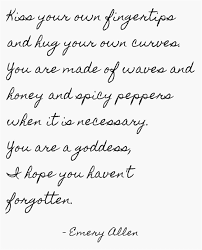 Kiss your own fingertips
and hug your own curves.
You are made of waves and
honey and spicy peppers
when it is necessary.
You are a goddess,
I hope you haven't
forgotten.
- Emery Allen